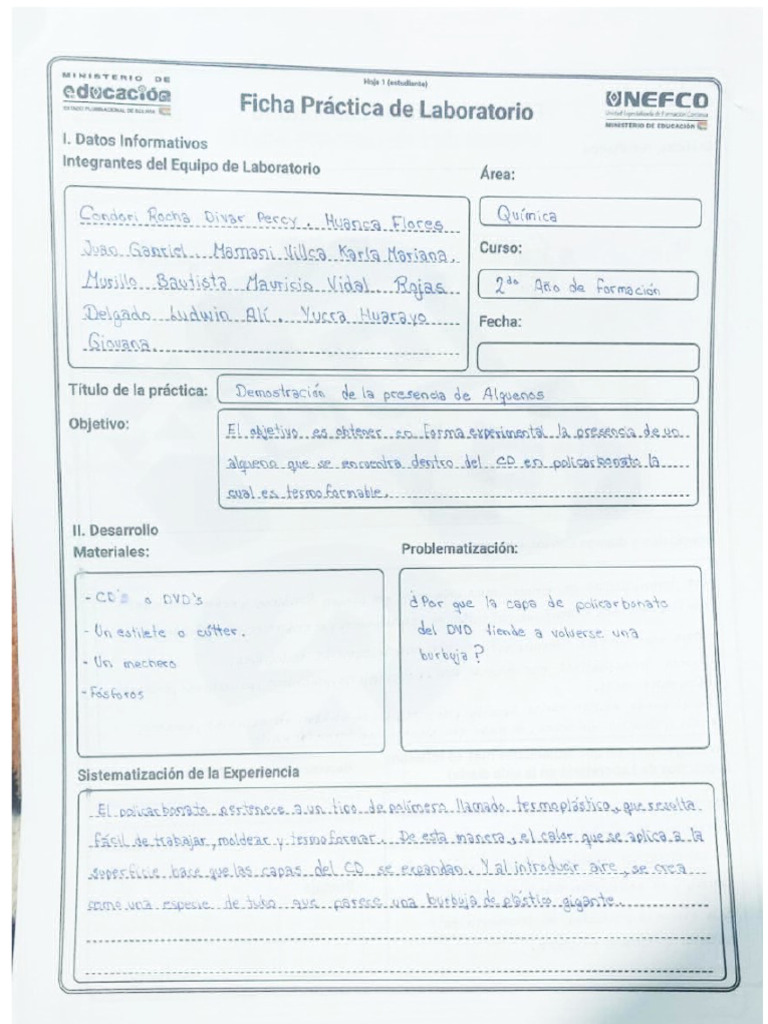 Hoja 1 (estudiante)
MINISTERIO DE
educación
ESTADO PLURINACIONAL DE BOLIVIA
Ficha Práctica de Laboratorio
UNEFCO
Unidad Especializada de Formación Continua
MINISTERIO DE EDUCACIÓN
I. Datos Informativos
Integrantes del Equipo de Laboratorio
Condori Rocha Divar Percy. Huanca Flores
Juan Gabriel. Mamani Villca Karla Mariana.
Murillo Bautista Mauricio Vidal Rojas
Delgado Ludwin Alí. Yucra Huarayo
Giovana.
Área:
Química
Curso:
2do Año de Formación
Fecha:
Título de la práctica: Demostración de la presencia de Alquenos
Objetivo:
El objetivo es obtener en forma experimental la presencia de un
alqueno que se encuentra dentro del CD en policarbonato la
cual es termoformable.
II. Desarrollo
Materiales:
- CD's o DVD's
- Un estilete o cútter.
- Un mechero
- Fósforos
Problematización:
¿Por que la capa de policarbonato
del DVD tiende a volverse una
burbuja?
Sistematización de la Experiencia
El policarbonato pertenece a un tipo de polímero llamado termoplástico, que resulta
fácil de trabajar, moldear y termoformar. De esta manera, el calor que se aplica a la
superficie hace que las capas del CD se expandan. Y al introducir aire, se crea
como una especie de tubo que parece una burbuja de plástico gigante.